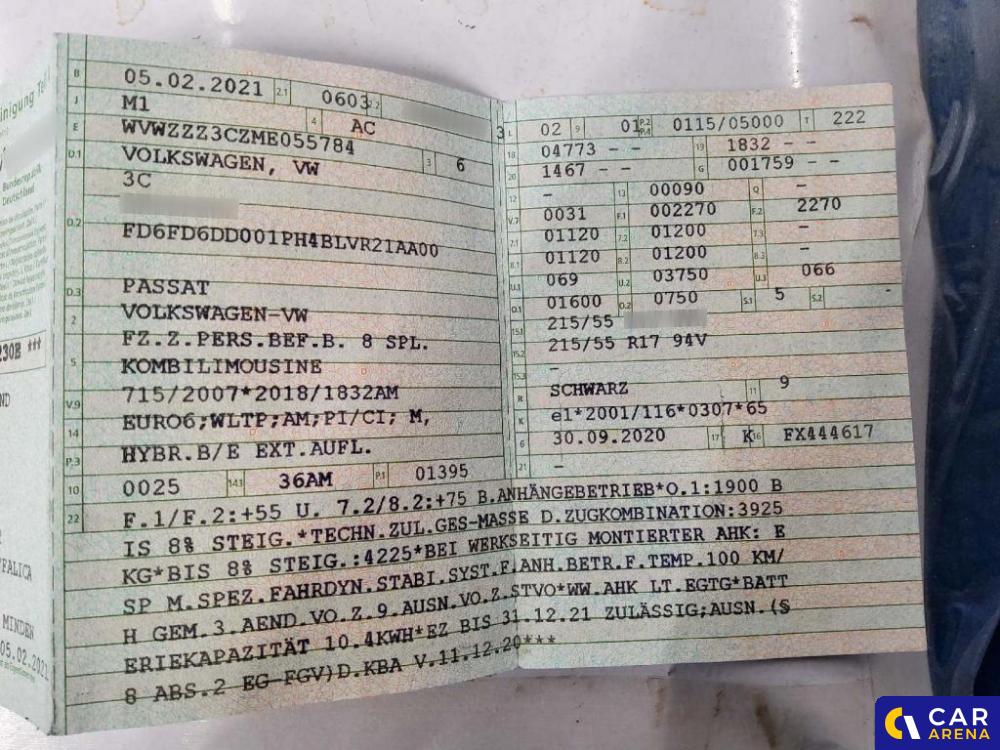 inigung Te
Bundesrepublik
Deutschland
230E ***
ND
FALICA
MINDEN
05.02.2021
B 05.02.2021 2.1 0603 2.2
J M1 4 AC
E WVWZZZ3CZME055784 3
D.1 VOLKSWAGEN, VW 3 6
3C
D.2 FD6FD6DD001PH4BLVR21AA00
D.3 PASSAT
2 VOLKSWAGEN-VW
FZ.Z.PERS.BEF.B. 8 SPL.
5 KOMBILIMOUSINE
V.9 715/2007*2018/1832AM
14 EURO6;WLTP;AM;PI/CI; M,
P.3 HYBR.B/E EXT.AUFL.
10 0025 14.1 36AM P.1 01395
L 02 9 01 P.2 P.4 0115/05000 T 222
18 04773 - - 19 1832 - -
20 1467 - - G 001759 - -
12 - 13 00090 Q -
V.7 0031 F.1 002270 F.2 2270
7.1 01120 7.2 01200 7.3 -
8.1 01120 8.2 01200 8.3 -
U.1 069 U.2 03750 U.3 066
O.1 01600 O.2 0750 S.1 5 S.2 -
15.1 215/55
15.2 215/55 R17 94V
15.3 -
R SCHWARZ 11 9
K e1*2001/116*0307*65
6 30.09.2020 17 K 16 FX444617
21 -
22 F.1/F.2:+55 U. 7.2/8.2:+75 B.ANHÄNGEBETRIEB*O.1:1900 B
IS 8% STEIG.*TECHN.ZUL.GES-MASSE D.ZUGKOMBINATION:3925
KG*BIS 8% STEIG.:4225*BEI WERKSEITIG MONTIERTER AHK: E
SP M.SPEZ.FAHRDYN.STABI.SYST.F.ANH.BETR.F.TEMP.100 KM/
H GEM.3.AEND.VO.Z.9.AUSN.VO.Z.STVO*WW.AHK LT.EGTG*BATT
ERIEKAPAZITÄT 10.4KWH*EZ BIS 31.12.21 ZULÄSSIG;AUSN.(§
8 ABS.2 EG-FGV)D.KBA V.11.12.20***
CAR
ARENA